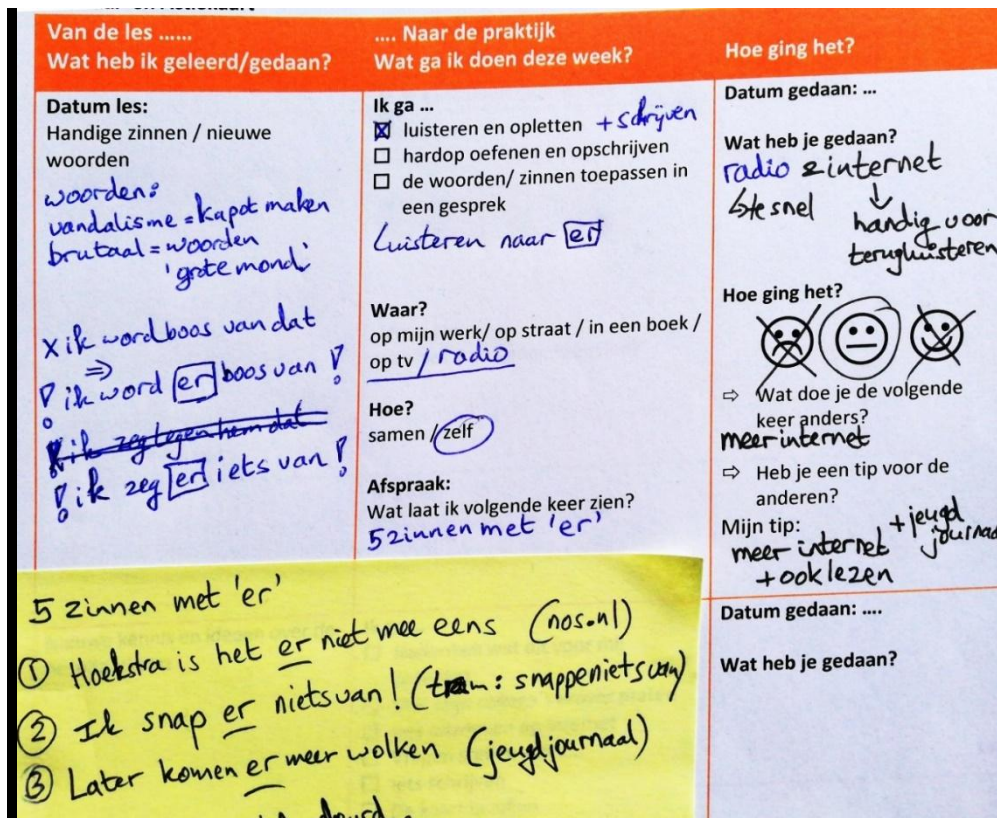 en Actiekaart
Van de les ......
Wat heb ik geleerd/gedaan?
Datum les:
Handige zinnen / nieuwe
woorden
woorden:
vandalisme = kapot maken
brutaal = woorden
'grote mond'
x ik word boos van dat
⇒
! ik word er boos van !
x ik zeg tegen hem dat
! ik zeg er iets van !
.... Naar de praktijk
Wat ga ik doen deze week?
Ik ga ...
☒ luisteren en opletten + schrijven
☐ hardop oefenen en opschrijven
☐ de woorden/ zinnen toepassen in
een gesprek
Luisteren naar er
Waar?
op mijn werk/ op straat / in een boek /
op tv / radio
Hoe?
samen / zelf
Afspraak:
Wat laat ik volgende keer zien?
5 zinnen met 'er'
Hoe ging het?
Datum gedaan: ...
Wat heb je gedaan?
radio & internet
↳ te snel
↓
handig voor
terugluisteren
Hoe ging het?
⇨ Wat doe je de volgende
keer anders?
meer internet
⇨ Heb je een tip voor de
anderen?
Mijn tip:
meer internet + jeugd
journaal
+ ook lezen
Datum gedaan: ....
Wat heb je gedaan?
5 zinnen met 'er'
① Hoekstra is het er niet mee eens (nos.nl)
② Ik snap er niets van! (tram: snappenietsvan)
③ Later komen er meer wolken (jeugdjournaal)